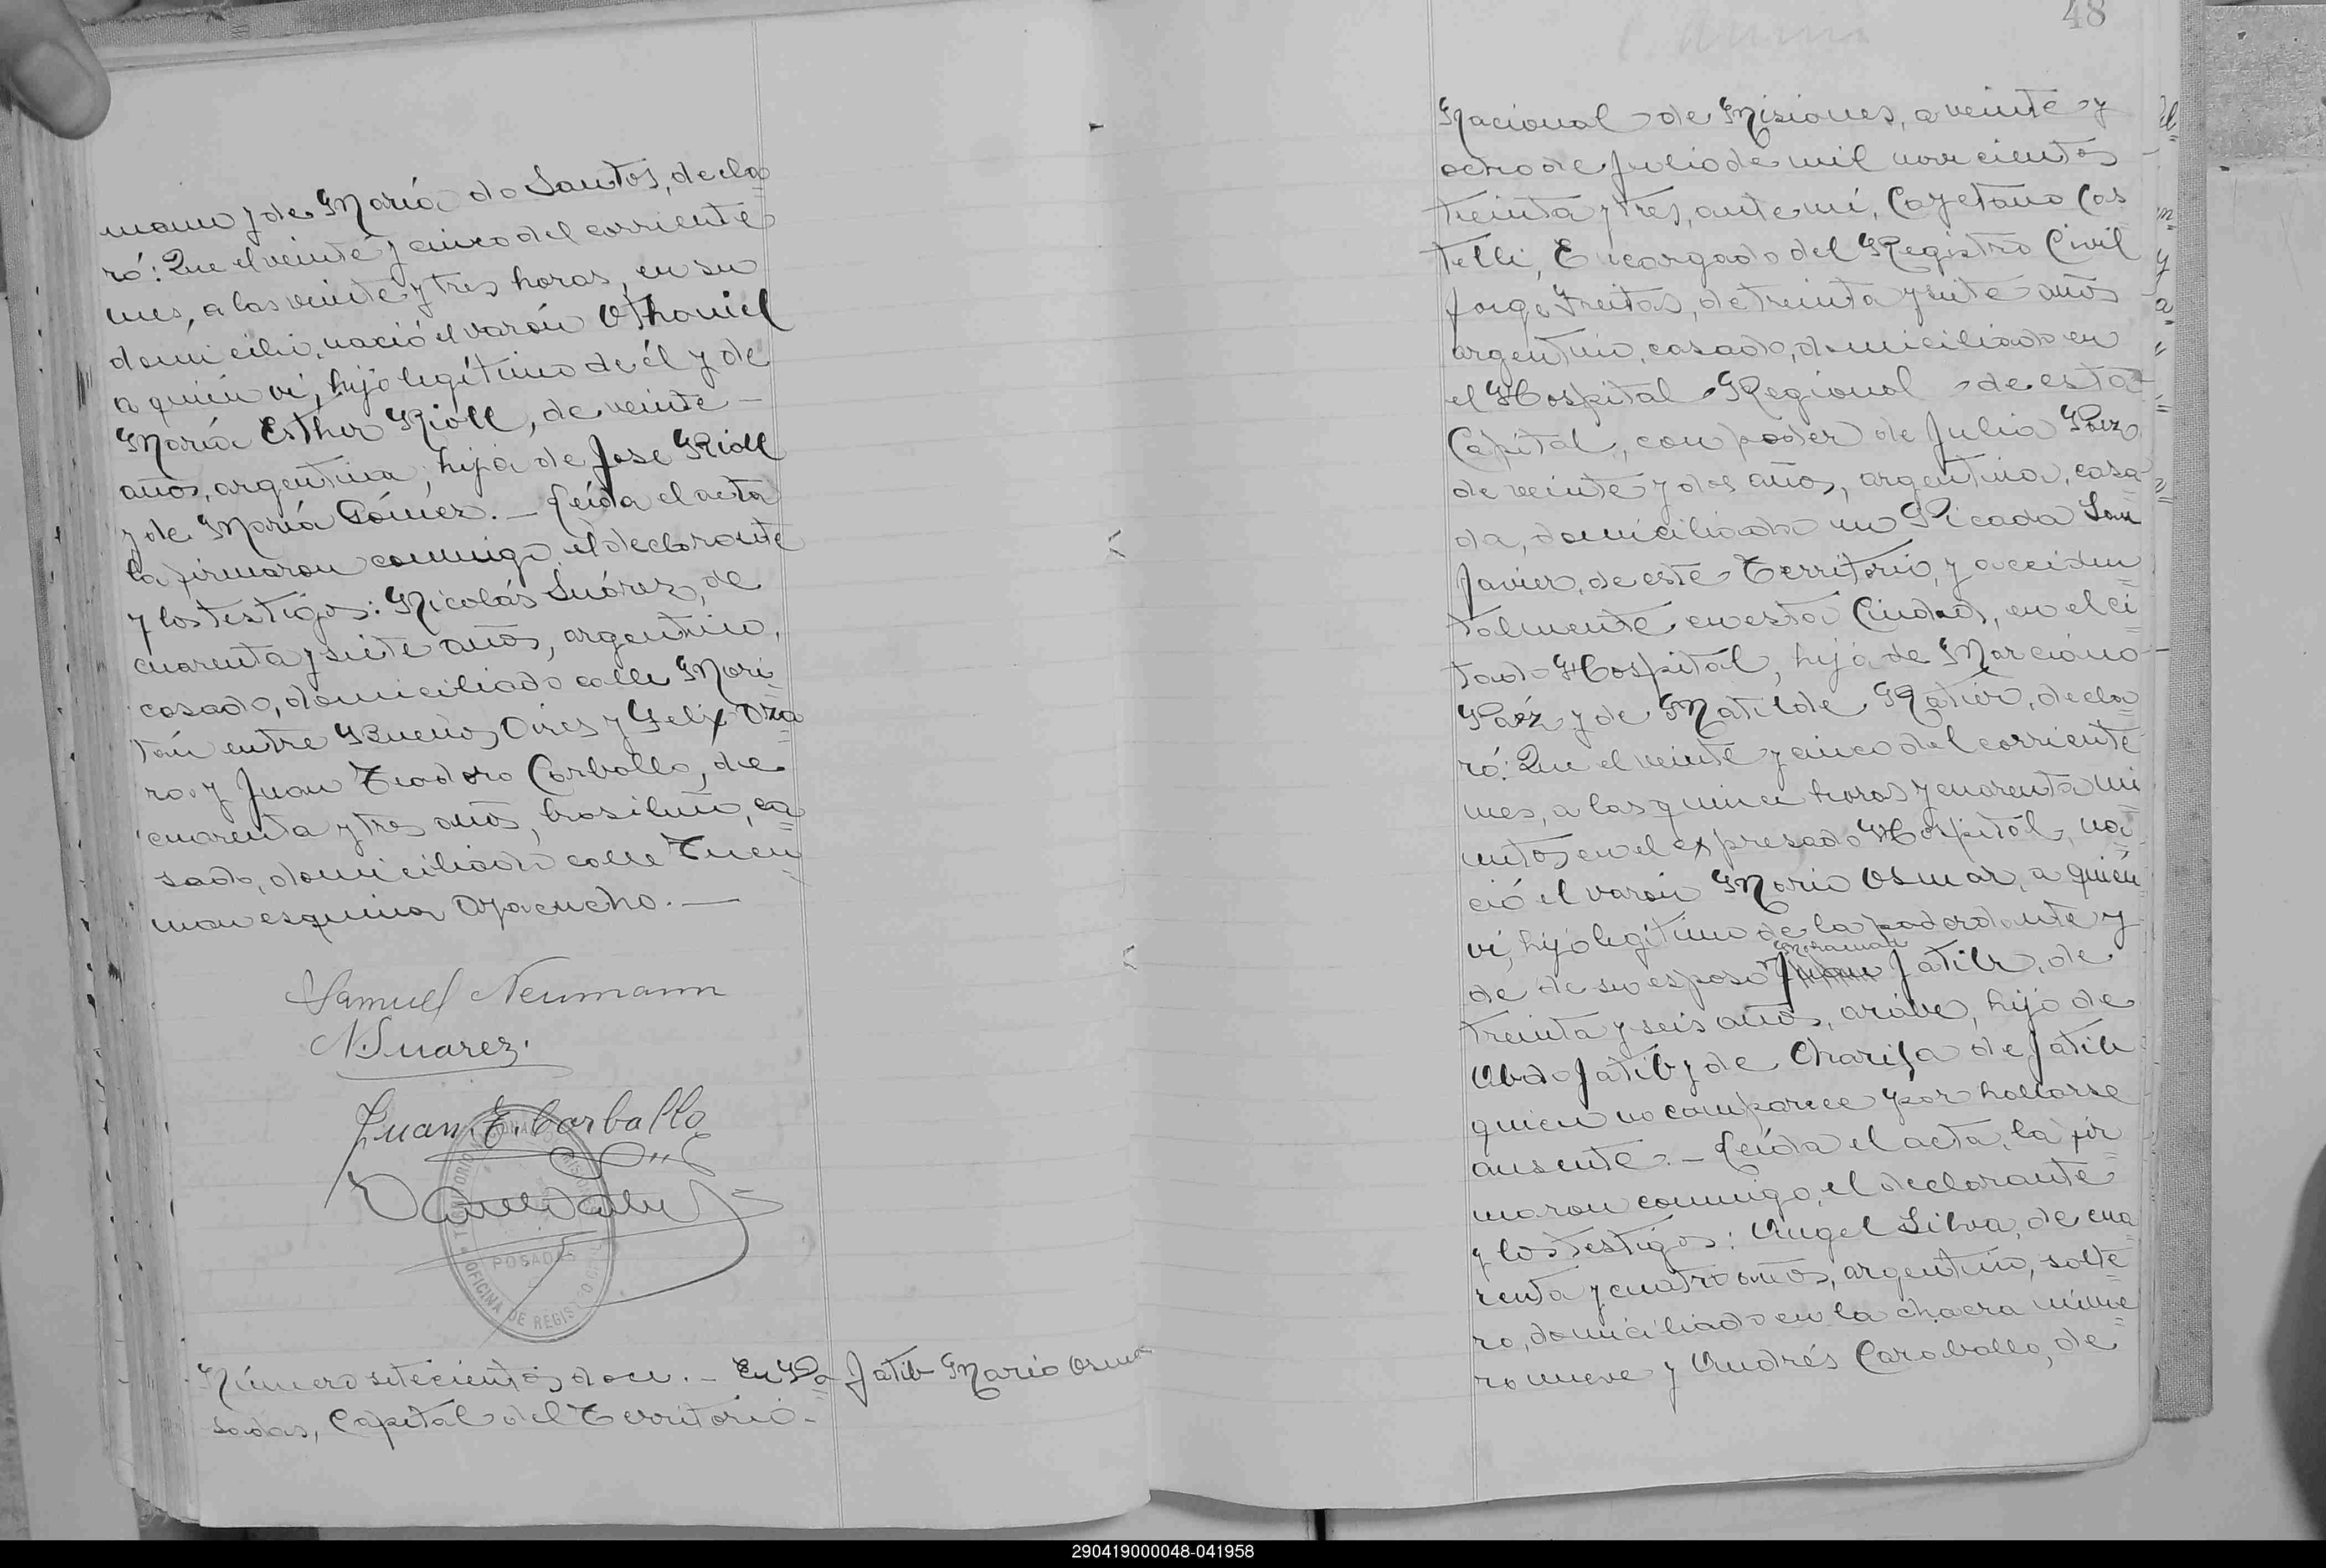 mann y de María do Santos, decla=
ró: Que el veinte y cinco del corriente
mes, a las veinte y tres horas, en su
domicilio, nació el varón Othoniel
a quién ví, hijo legítimo de él y de
María Esther Rioll, de veinte —
años, argentina, hija de José Rioll
y de María Gómez. — Leída el acta
la firmaron conmigo, el declarante
y los testigos: Nicolás Suárez, de
cuarenta y siete años, argentino,
casado, domiciliado calle Mori=
tán entre Buenos Aires y Felix Aza=
ro y Juan Teodoro Carballo, de
cuarenta y tres años, brasileño, ca=
sado, domiciliado calle Tucu=
man esquina Ayacucho. —
Samuel Neumann
N. Suarez.
Juan E. Carballo
TERRITORIO NACIONAL DE MISIONES
POSADAS
OFICINA DE REGISTRO CIVIL
Número setecientos doce. — En Po=
sadas, Capital del Territorio -
Jatib Mario Osmar
48
Nacional de Misiones, a veinte y
ocho de Julio de mil novecientos
treinta y tres, ante mí, Cayetano Cas
telli, Encargado del Registro Civil
Jorge Freitas, de treinta y siete años
argentino, casado, domiciliado en
el Hospital Regional de esta
Capital, con poder de Julia Páez
de veinte y dos años, argentina, casa=
da, domiciliada en Picada San
Javier, de este Territorio, y acciden=
talmente en esta Ciudad, en el ci=
tado Hospital, hija de Marciano
Paéz y de Matilde Ratier, decla=
ró: Que el veinte y cinco del corriente
mes, a las quince horas y cuarenta mi=
nutos en el expresado Hospital, na=
ció el varón Mario Osmar, a quién
ví, hijo legítimo de la poderdante y
Mohamad
de de su esposo Juan Jatib, de
treinta y seis años, arábe, hijo de
Abdo Jatib y de Charifa de Jatib
quien no comparece por hallarse
ausente. — Leída el acta, la fir=
maron conmigo, el declarante
y los testigos: Angel Silva, de cua=
renta y cuatro años, argentino, solte=
ro, domiciliado en la chacra núme=
ro nueve y Andrés Caraballo, de
290419000048-041958